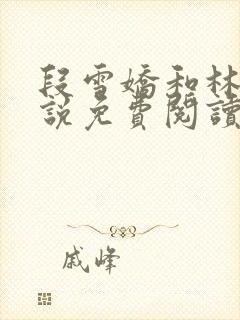 段雪嬌和林
說免費閱讀
戚峰